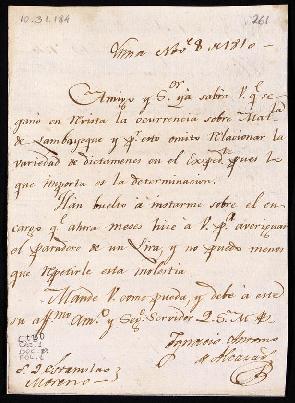 10.31.184
261
Lima Nov.e 8 de 1810
Amigo y S.or ya sabrá V. q.e se
ganó en Revista la ocurrencia sobre
de Lambayeque y p.r esto omito Relacionar la
variedad de dictamenes en el Exped.te pues lo
que importa es la determinacion.
Hán buelto á instarme sobre el en
cargo q.e ahora meses hice á V. p.a averiguar
el paradero de un Lira, y no puedo menos
que Repetirle esta molestia.
Mande V. como pueda, y debe á este
su aff.mo Am.o y Seg.o Servidor Q. S. M. B.
Ygnacio Antonio
de Alcazar
S. D. Estanislao
Moreno